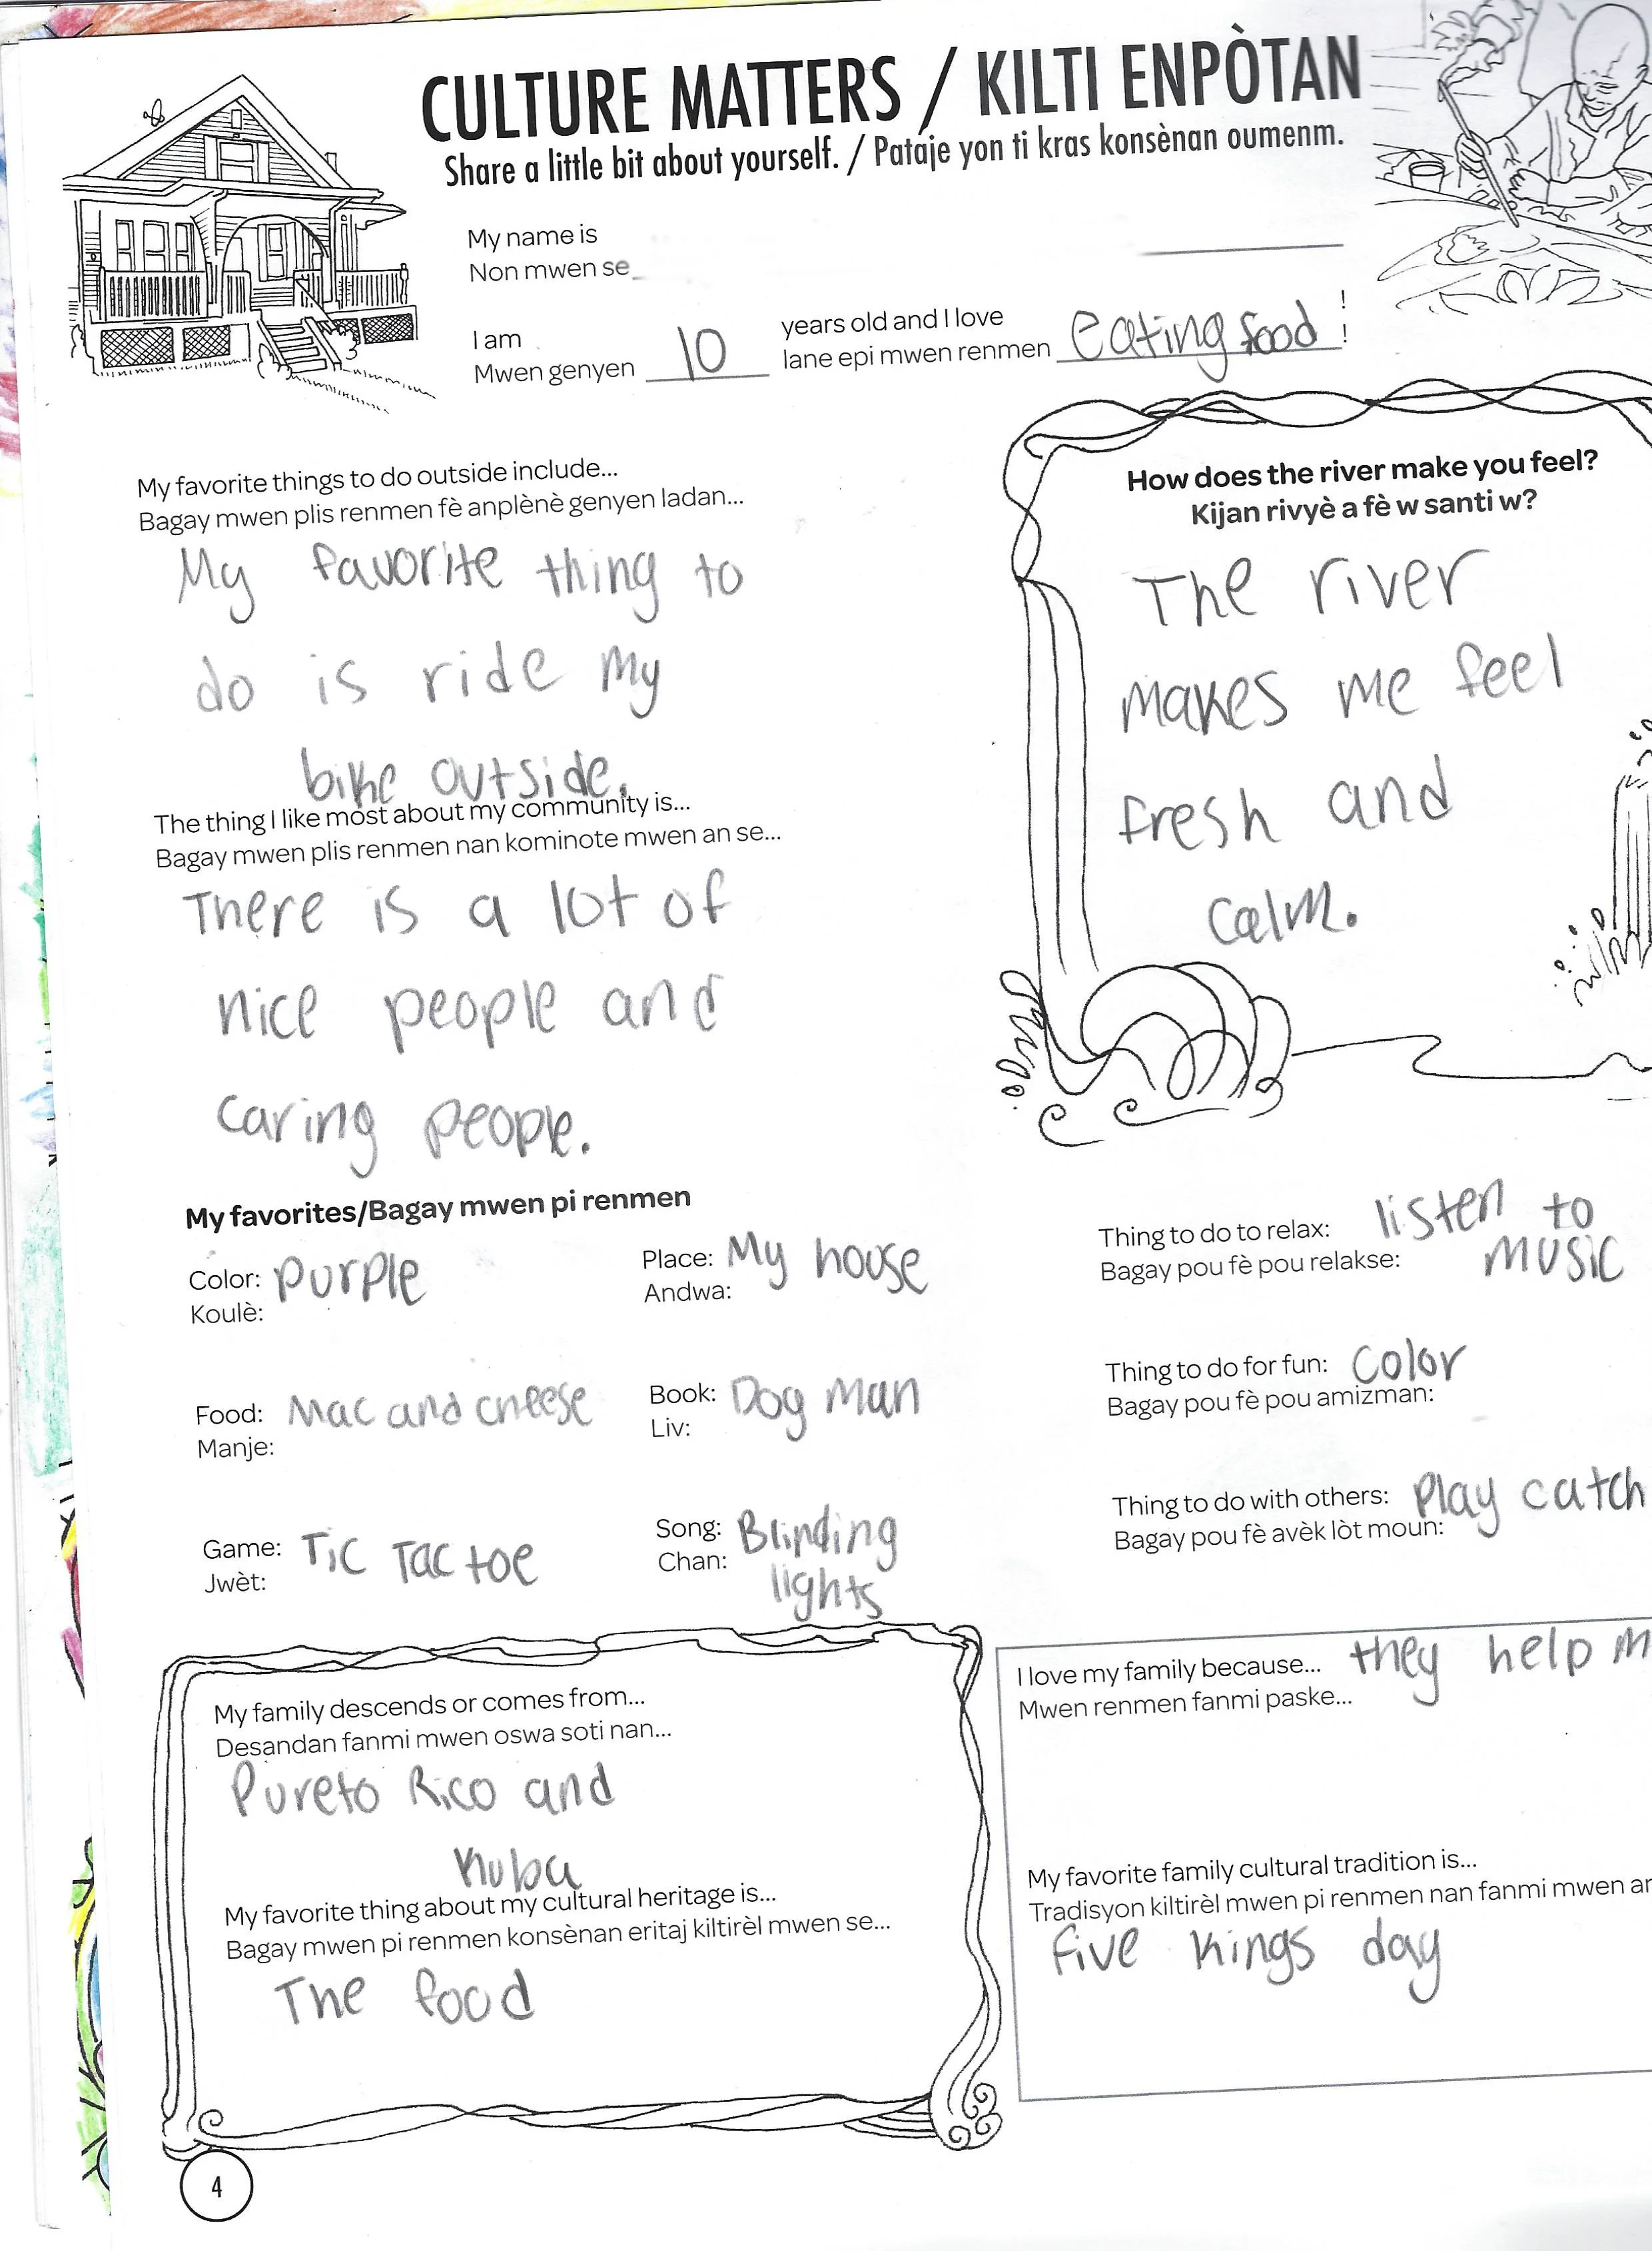 CULTURE MATTERS / KILTI ENPÒTAN
Share a little bit about yourself. / Pataje yon ti kras konsènan oumenm.
My name is
Non mwen se
I am
Mwen genyen 10
years old and I love
lane epi mwen renmen eating food !
!
My favorite things to do outside include...
Bagay mwen plis renmen fè anplènè genyen ladan...
My favorite thing to
do is ride my
bike outside.
The thing I like most about my community is...
Bagay mwen plis renmen nan kominote mwen an se...
There is a lot of
nice people and
caring people.
How does the river make you feel?
Kijan rivyè a fè w santi w?
The river
makes me feel
fresh and
calm.
My favorites/Bagay mwen pi renmen
Color: purple
Koulè:
Food: Mac and cheese
Manje:
Game: Tic Tac toe
Jwèt:
Place: My house
Andwa:
Book: Dog Man
Liv:
Song: Blinding
Chan: lights
Thing to do to relax: listen to
Bagay pou fè pou relakse: music
Thing to do for fun: color
Bagay pou fè pou amizman:
Thing to do with others: Play catch
Bagay pou fè avèk lòt moun:
My family descends or comes from...
Desandan fanmi mwen oswa soti nan...
Pureto Rico and
Kuba
My favorite thing about my cultural heritage is...
Bagay mwen pi renmen konsènan eritaj kiltirèl mwen se...
The food
I love my family because... they help m
Mwen renmen fanmi paske...
My favorite family cultural tradition is...
Tradisyon kiltirèl mwen pi renmen nan fanmi mwen
five kings day
4